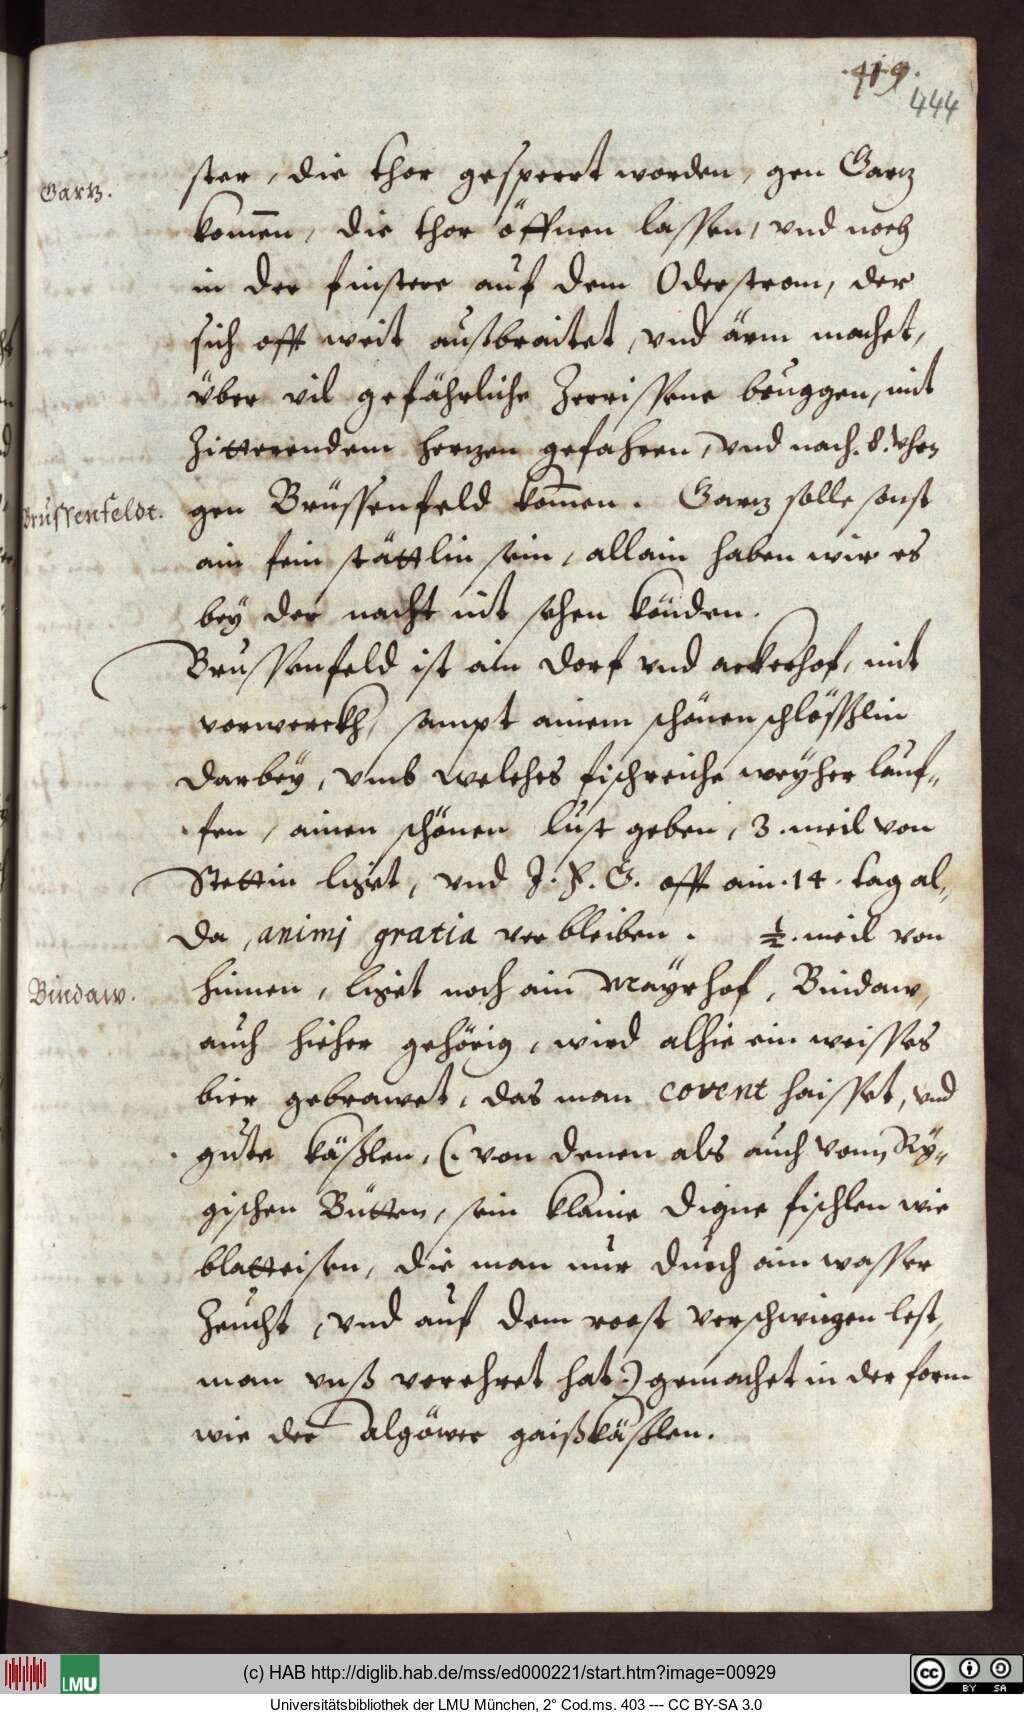 .419.
444
Gartz.
ster, die thor gesperrt worden, gen Gartz
kom̄en, die thor öffnen lassen, vnd noch
in der finstere auf dem Oderstrom, der
sich offt weit außbraitet, vnd ärm machet,
über vil gefährliche Zerrissene bruggen, mit
Zitterendem hertzen gefahren, vnd nach .8. vhrn
Brüssenfeldt.
gen Brüssenfeld kom̄en. Gartz solle sonst
ain fein stättlin sein, allain haben wir es
bey der nacht nit sehen könden.
Brussenfeld ist ain dorf vnd ackerhof, mit
vorwerckh, sampt ainem schönen schlößlin
darbey, vmb welches fischreiche weyher lauf-
fen, ainen schönen lust geben, 3. meil von
Stettin ligt, vnd J. F. G. offt ain .14. tag al-
da, animj gratia verbleiben. ½. meil von
Bindaw.
hinnen, ligt noch ain Mayrhof, Bindaw,
auch hieher gehörig, wird alhie ein weisses
bier gebrawet, das man covent haisset, vnd
gute käßlen, (. von denen als auch vom Ry-
gischen Butten, sein klaine digne fischlen wie
blatteisen, die man nur durch ain wasser
Zeucht, vnd auf dem roost verschwitzen lest,
man vnß verehret hat.) gemachet in der form
wie der Algöwer gaißkäßlen.
(c) HAB http://diglib.hab.de/mss/ed000221/start.htm?image=00929
LMU
cc BY SA
Universitätsbibliothek der LMU München, 2° Cod.ms. 403 --- CC BY-SA 3.0